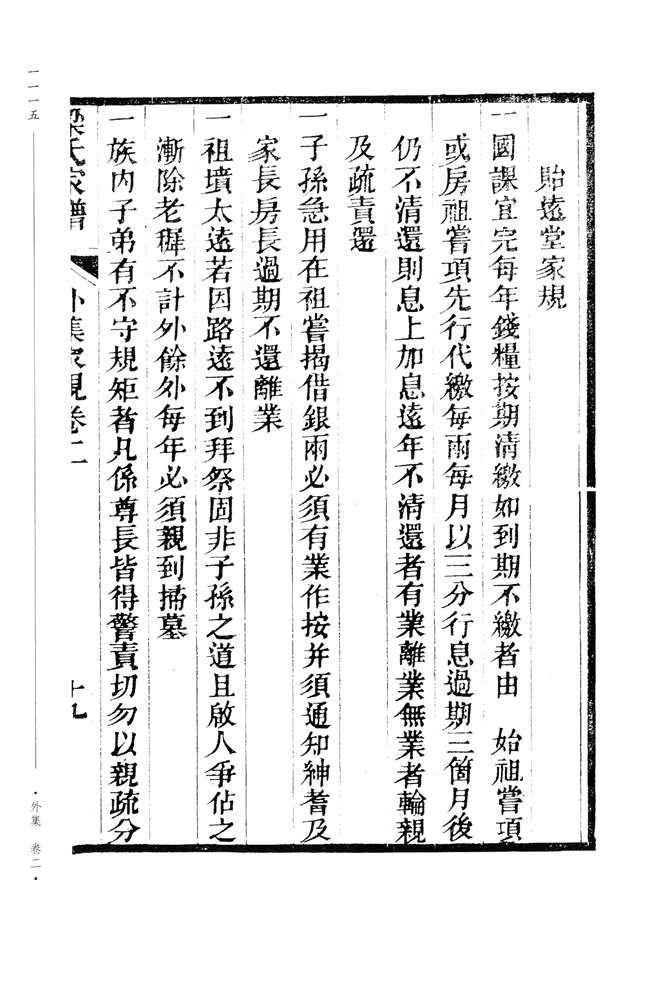 貽遠堂家規
一國課宜完每年錢糧按期清繳如到期不繳者由　始祖嘗項
或房祖嘗項先行代繳每兩每月以三分行息過期三箇月後
仍不清還則息上加息遠年不清還者有業離業無業者輪親
及疏責還
一子孫急用在祖嘗揭借銀兩必須有業作按并須通知紳耆及
家長房長過期不還離業
一祖墳太遠若因路遠不到拜祭固非子孫之道且啟人爭佔之
漸除老穉不計外餘外每年必須親到掃墓
一族內子弟有不守規矩者凡係尊長皆得警責切勿以親疏分
梁氏家譜　外集家規卷二　十九
一一一五
·外集　卷二·